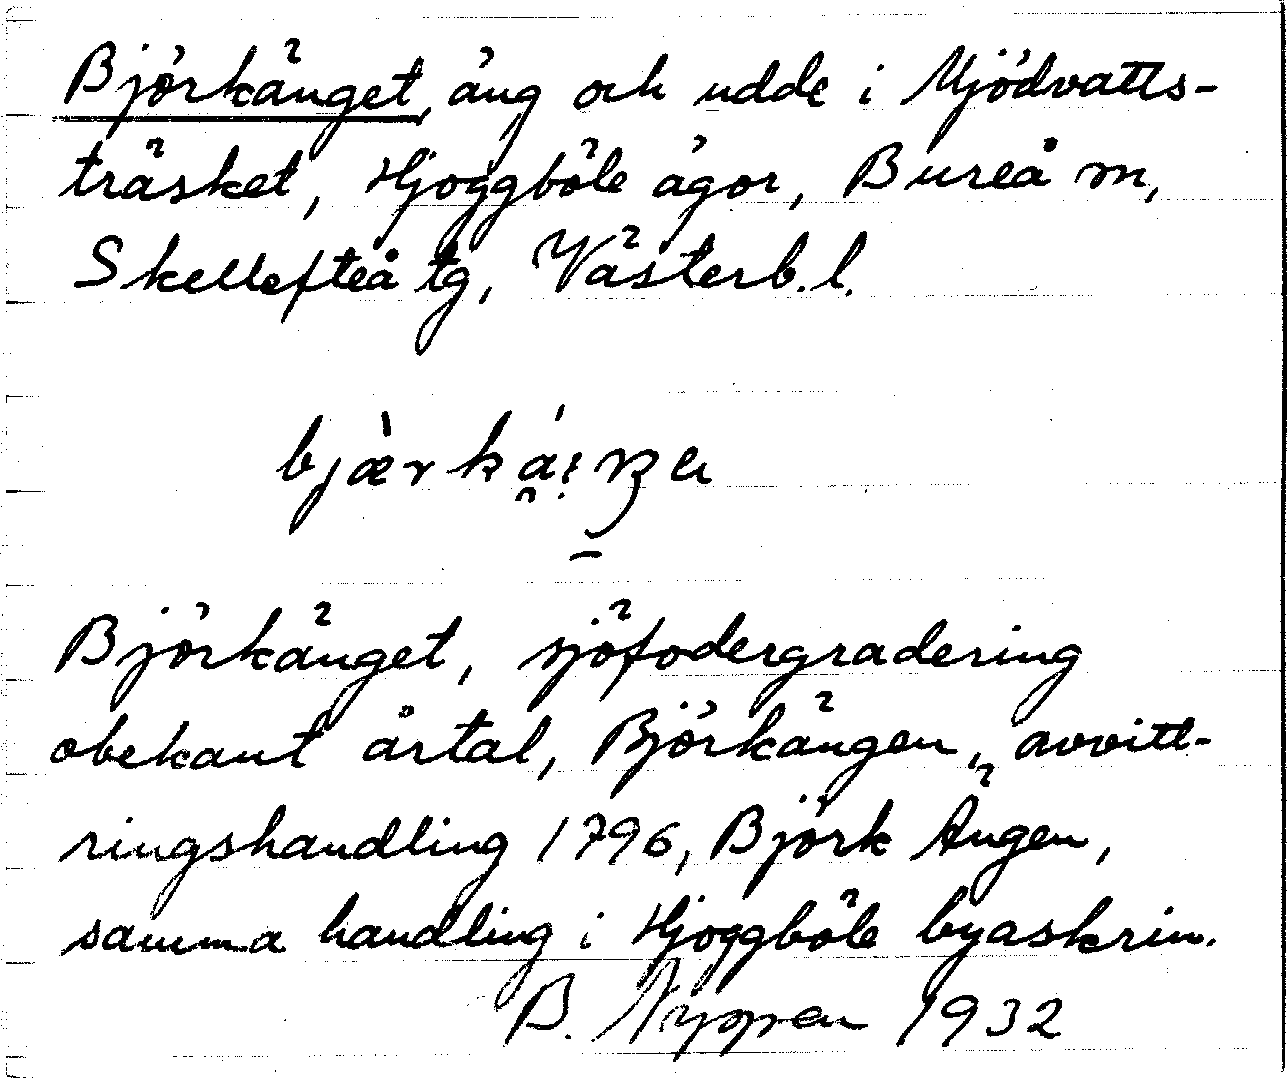 Björkänget, äng och udde i Mjödvatts-
träsket, Hjoggböle ägor, Bureå sn,
Skellefteå tg, Västerb. l.
Björkänget, sjöfodergradering
obekant årtal, Björkängen, avvitt-
ringshandling 1796, Björk Ängen,
samma handling i Hjoggböle byaskrin.
B. Nyman 1932